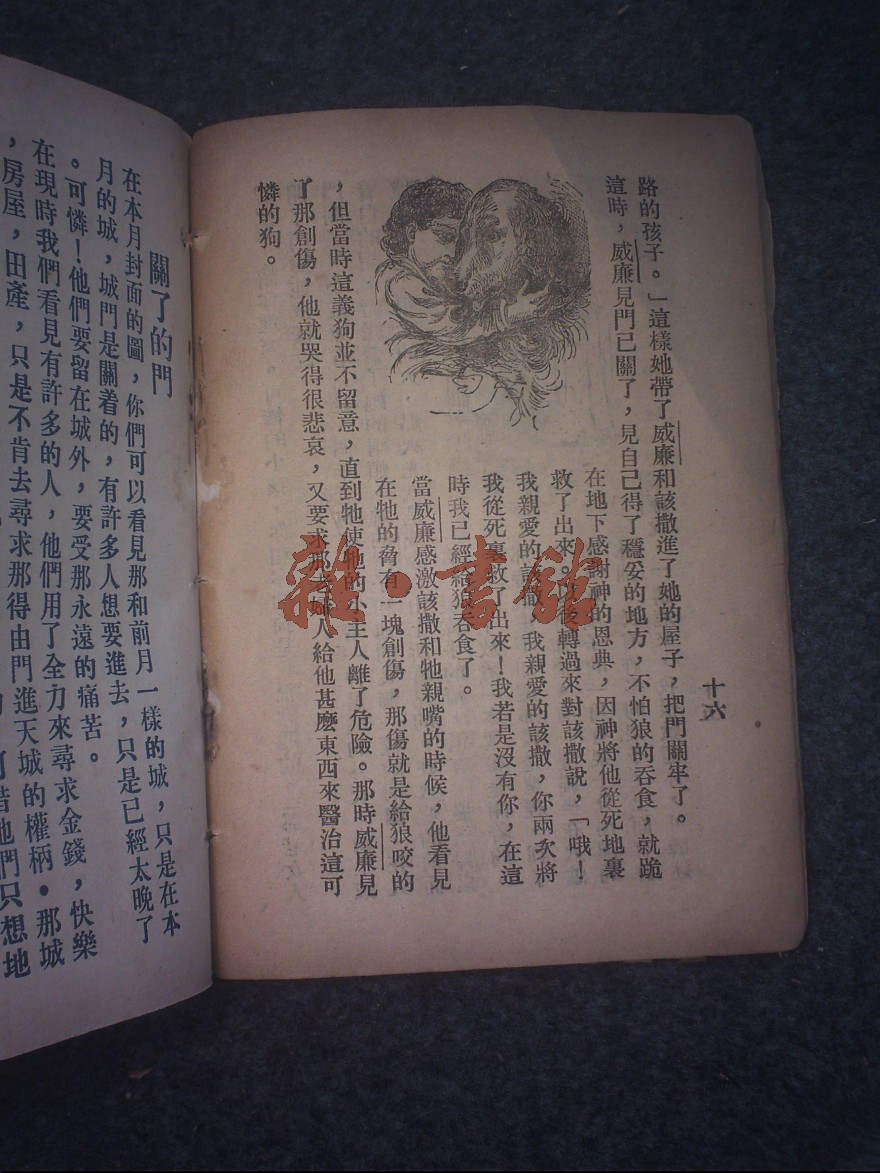 十六
路的孩子。」這樣她帶了威廉和該撒進了她的屋子，把門關牢了。
這時，威廉見門已關了，見自己得了穩妥的地方，不怕狼的吞食，就跪
在地下感謝神的恩典，因神將他從死地裏
救了出來。以後轉過來對該撒說，「哦！
我親愛的該撒，我親愛的該撒，你兩次將
我從死裏救了出來！我若是沒有你，在這
時我已經給狼吞食了。
當威廉感激該撒和牠親嘴的時候，他看見
在牠的脅有一塊創傷，那傷就是給狼咬的
，但當時這義狗並不留意，直到牠使他的小主人離了危險。那時威廉見
了那創傷，他就哭得很悲哀，又要求那老婦人給他甚麽東西來醫治這可
憐的狗。
關了的門
在本月封面的圖，你們可以看見那和前月一樣的城，只是在本
月的城，城門是關着的，有許多人想要進去，只是已經太晚了
。可憐！他們要留在城外，要受那永遠的痛苦。
在現時我們看見有許多的人，他們用了全力來尋求金錢，快樂
，房屋，田產，只是不肯去尋求那得由門進天城的權柄。那城
們只想地
雜·書館